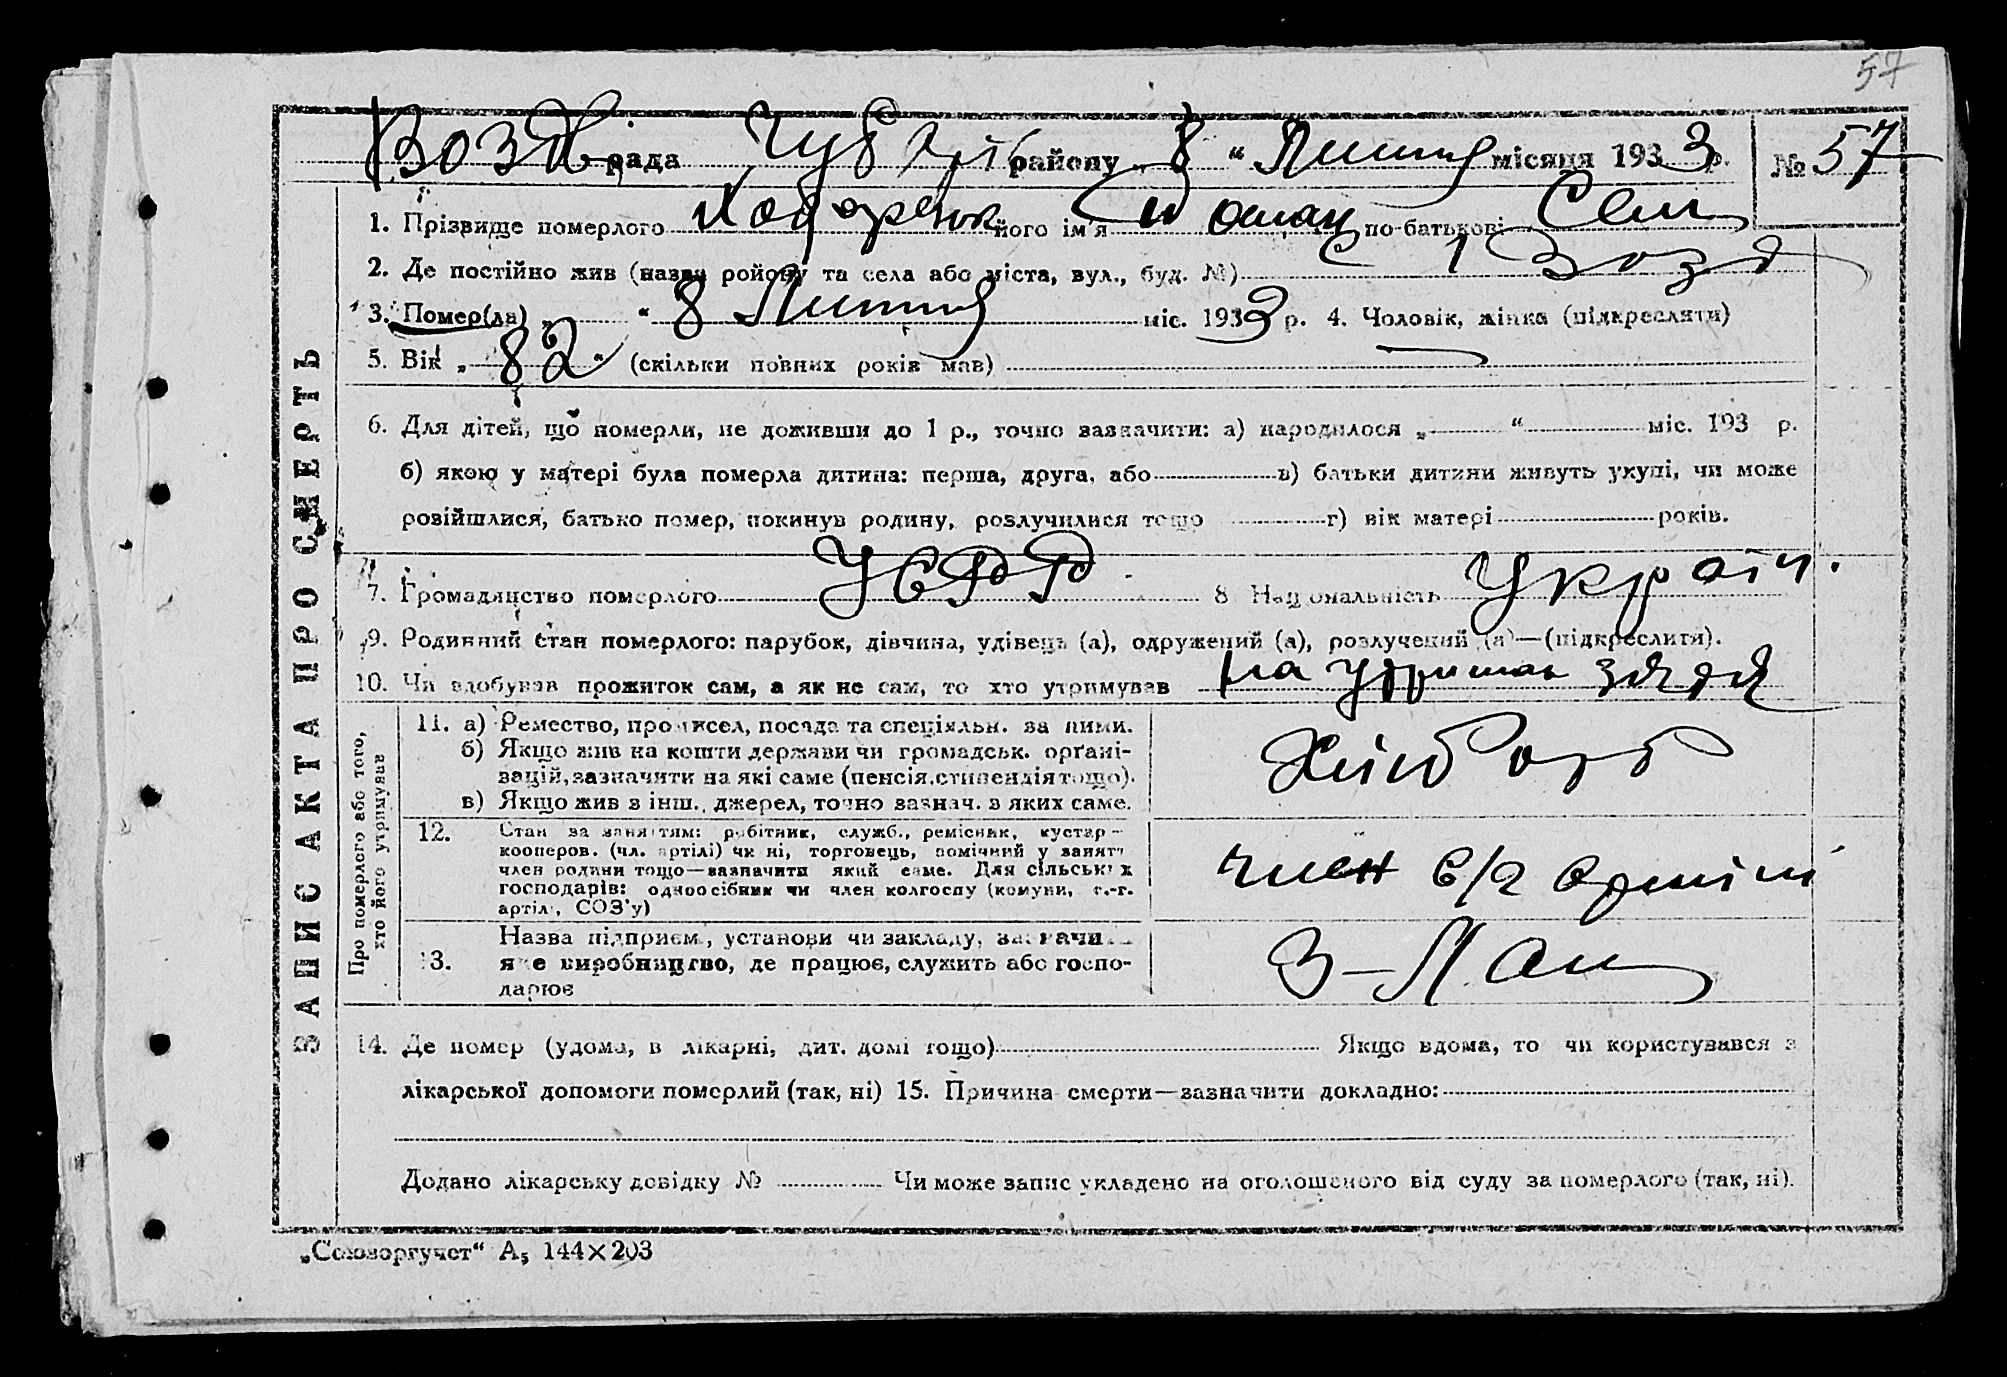 57
Возв рада Чубарів району „ 8 “ Липня місяця 1933 р. № 57
ЗАПИС АКТА ПРО СМЕРТЬ
1. Прізвище померлого його ім'я по-батькові Сем
2. Де постійно жив (назва ройону та села або міста, вул., буд. №) с Возд
3. Помер(ла) „ “ 8 Липня міс. 1933 р. 4. Чоловік, жінка (підкреслити)
5. Вік „ 82 “ (скільки повних років мав)
6. Для дітей, що померли, не доживши до 1 р., точно зазначити: а) народилося „ “ міс. 193 р.
б) якою у матері була померла дитина: перша, друга, або в) батьки дитини живуть укупі, чи може
розійшлися, батько помер, покинув родину, розлучилися тощо г) вік матері років.
7. Громадянство померлого УСРР 8 Національність Україн.
9. Родинний стан померлого: парубок, дівчина, удівець (а), одружений (а), розлучений (а)—(підкреслити).
10. Чи здобував прожиток сам, а як не сам, то хто утримував на утриман зятя
Про померлого або того, хто його утримував
11. а) Ремество, промисел, посада та спеціяльн. за ними.
б) Якщо жив на кошти держави чи громадськ. орґані-
зацій, зазначити на які саме (пенсія, стипендія тощо).
в) Якщо жив з інш. джерел, точно зазнач. з яких саме.
Хлібороб
12. Стан за заняттям: робітник, служб., ремісник, кустар—
кооперов. (чл. артілі) чи ні, торговець, помічний у занятт
член родини тощо—зазначити який саме. Для сільських
господарів: одноосібник чи член колгоспу (комуни, с.-г.
артілі, СОЗ'у)
член с/г артілі
13. Назва підприєм., установи чи закладу, зазначити
яке виробництво, де працює, служить або госпо-
дарює
З-Лан
14. Де помер (удома, в лікарні, дит. домі тощо) Якщо вдома, то чи користувався з
лікарської допомоги померлий (так, ні) 15. Причина смерти—зазначити докладно:
Додано лікарську довідку № Чи може запис укладено на оголошеного від суду за померлого (так, ні).
„Союзоргучет“ А5 144×203